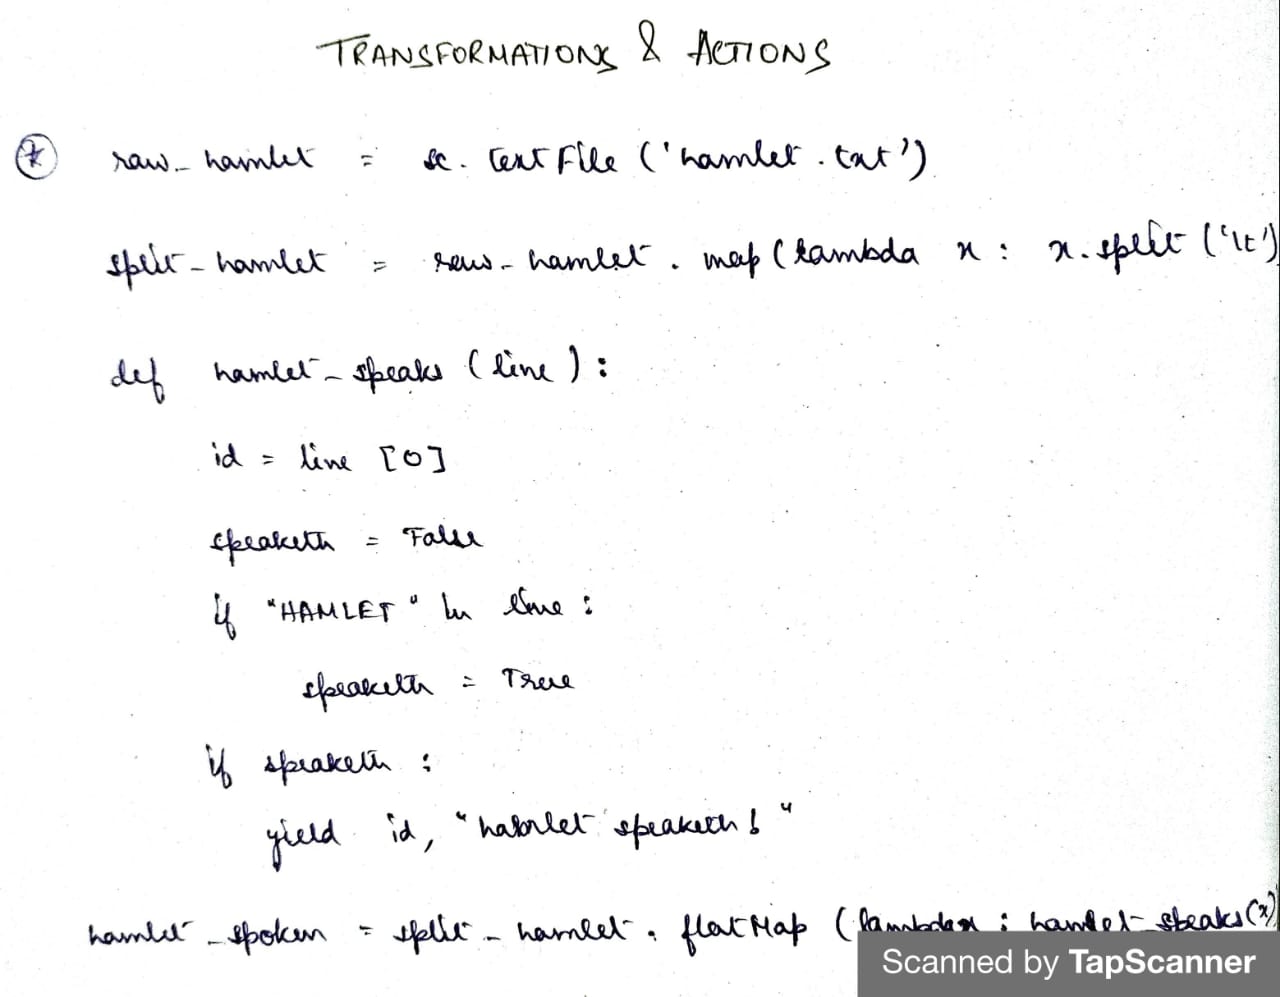 TRANSFORMATIONS & ACTIONS
* raw_hamlet = sc.textFile('hamlet.txt')
split_hamlet = raw_hamlet.map(lambda x: x.split('\t')
def hamlet_speaks(line):
id = line [0]
speaketh = False
if "HAMLET" in line:
speaketh = True
if speaketh:
yield id, "hamlet speaketh!"
hamlet_spoken = split_hamlet.flatMap(lambda x: hamlet_speaks(x)
Scanned by TapScanner